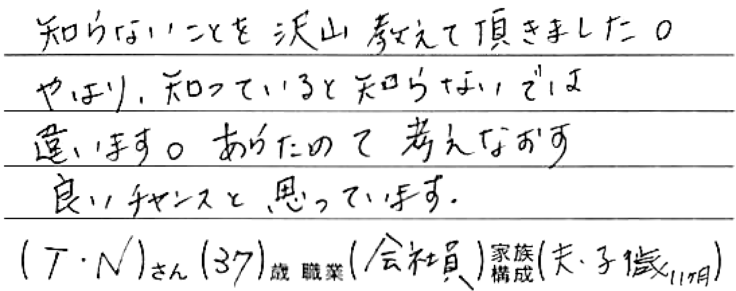 知らないことを沢山教えて頂きました。
やはり、知っていると知らないでは
違います。あらためて考えなおす
良いチャンスと思っています.
(T・N)さん(37)歳 職業(会社員)家族構成(夫・子1歳11ヶ月)